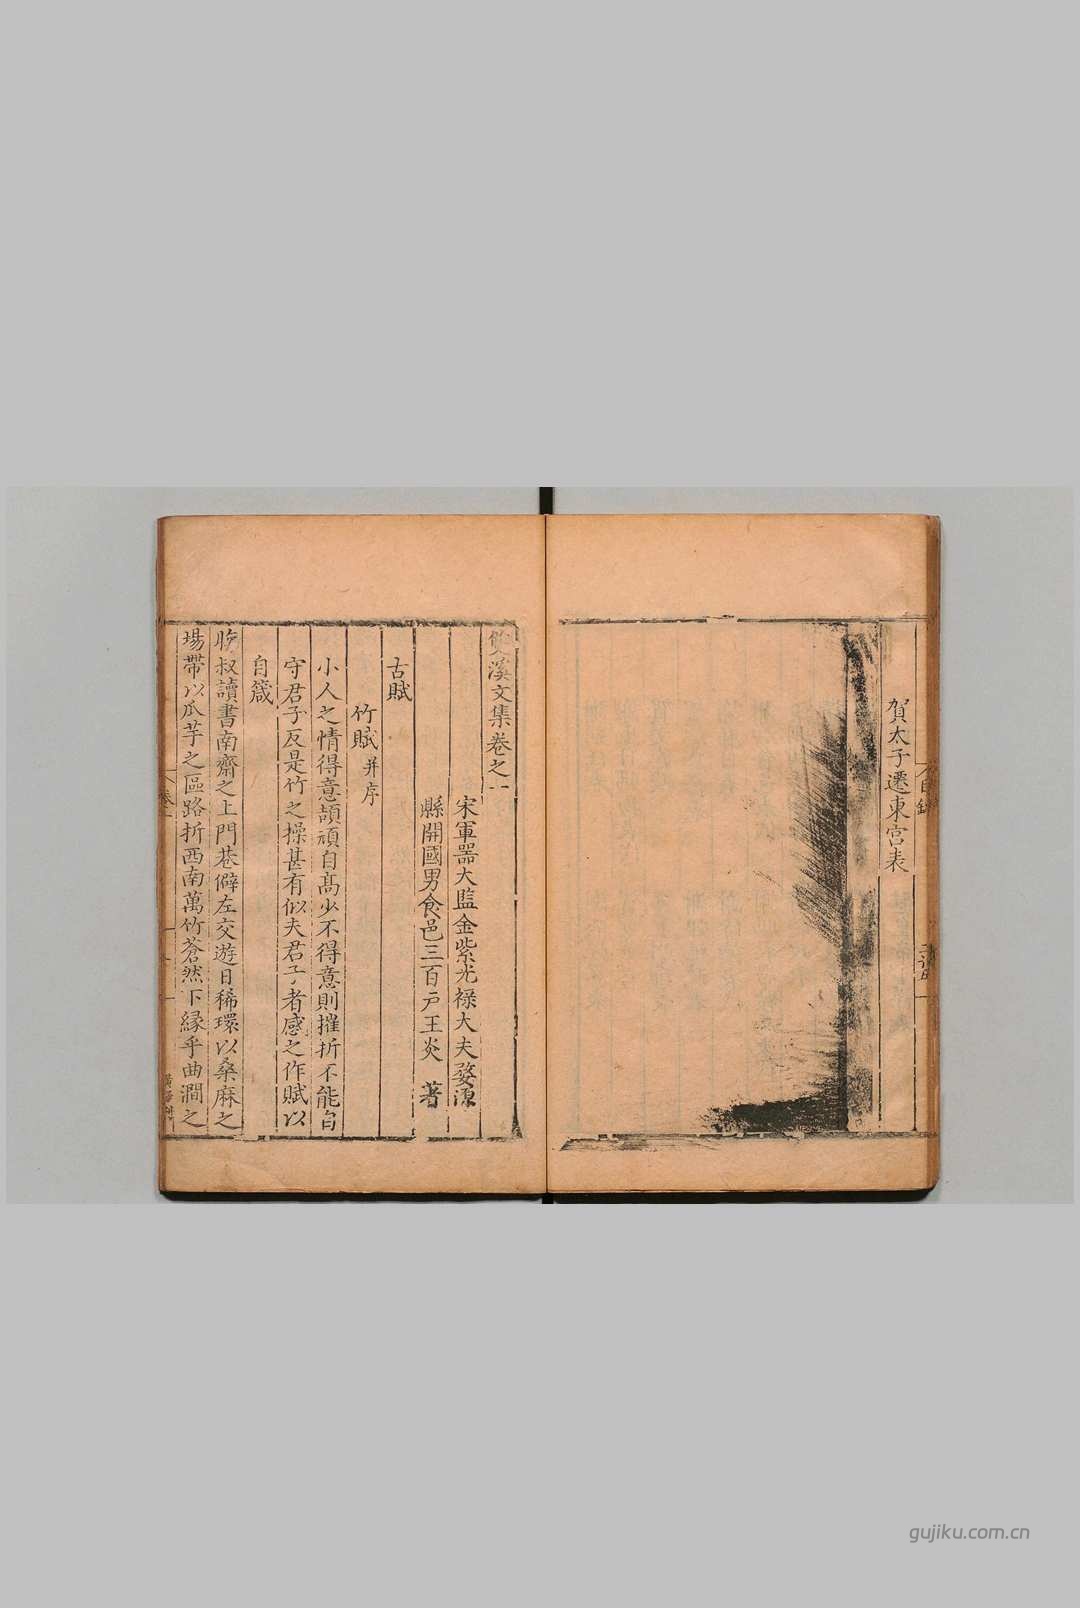 賀太子遷東宮表
目録
雙溪文集卷之一
宋軍噐大監金紫光禄大夫婺源
縣開國男食邑三百戶王炎 著
古賦
竹賦 并序
小人之情得意頡頏自髙少不得意則摧折不能自
守君子反是竹之操甚有似夫君子者感之作賦以
自箴
晚叔讀書南齋之上門巷僻左交遊日稀環以桑麻之
場帶以瓜芋之區路折西南萬竹蒼然下緣乎曲澗之
卷一
gujiku.com.cn